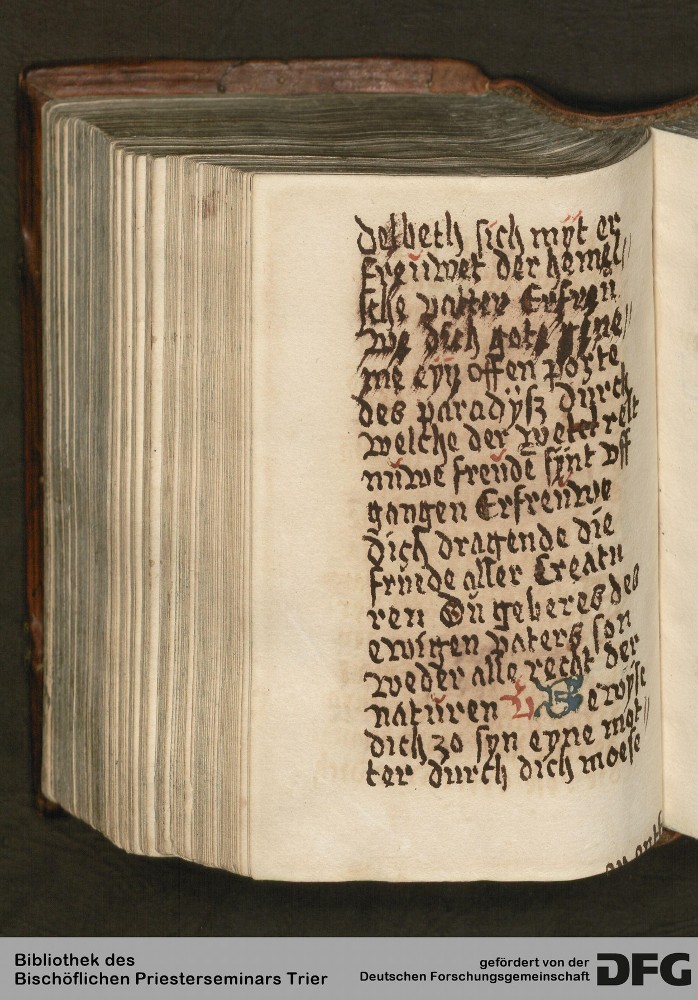 delbeth sich myt er
freüwet der hemel//
sche vatter Erfreü
we dich gotz //
me eyn offen porte
des paradÿsz durch
welche der werelt
nüwe freüde sÿnt vff
gangen Erfreüwe
dich dragende die
früede aller Creatu
ren Dü geberes des
ewigen vaters son
weder alle recht der
natüren V Bewÿse
dich zo syn eyne mot//
ter durch dich moese
Bibliothek des
Bischöflichen Priesterseminars Trier
gefördert von der
Deutschen Forschungsgemeinschaft
DFG